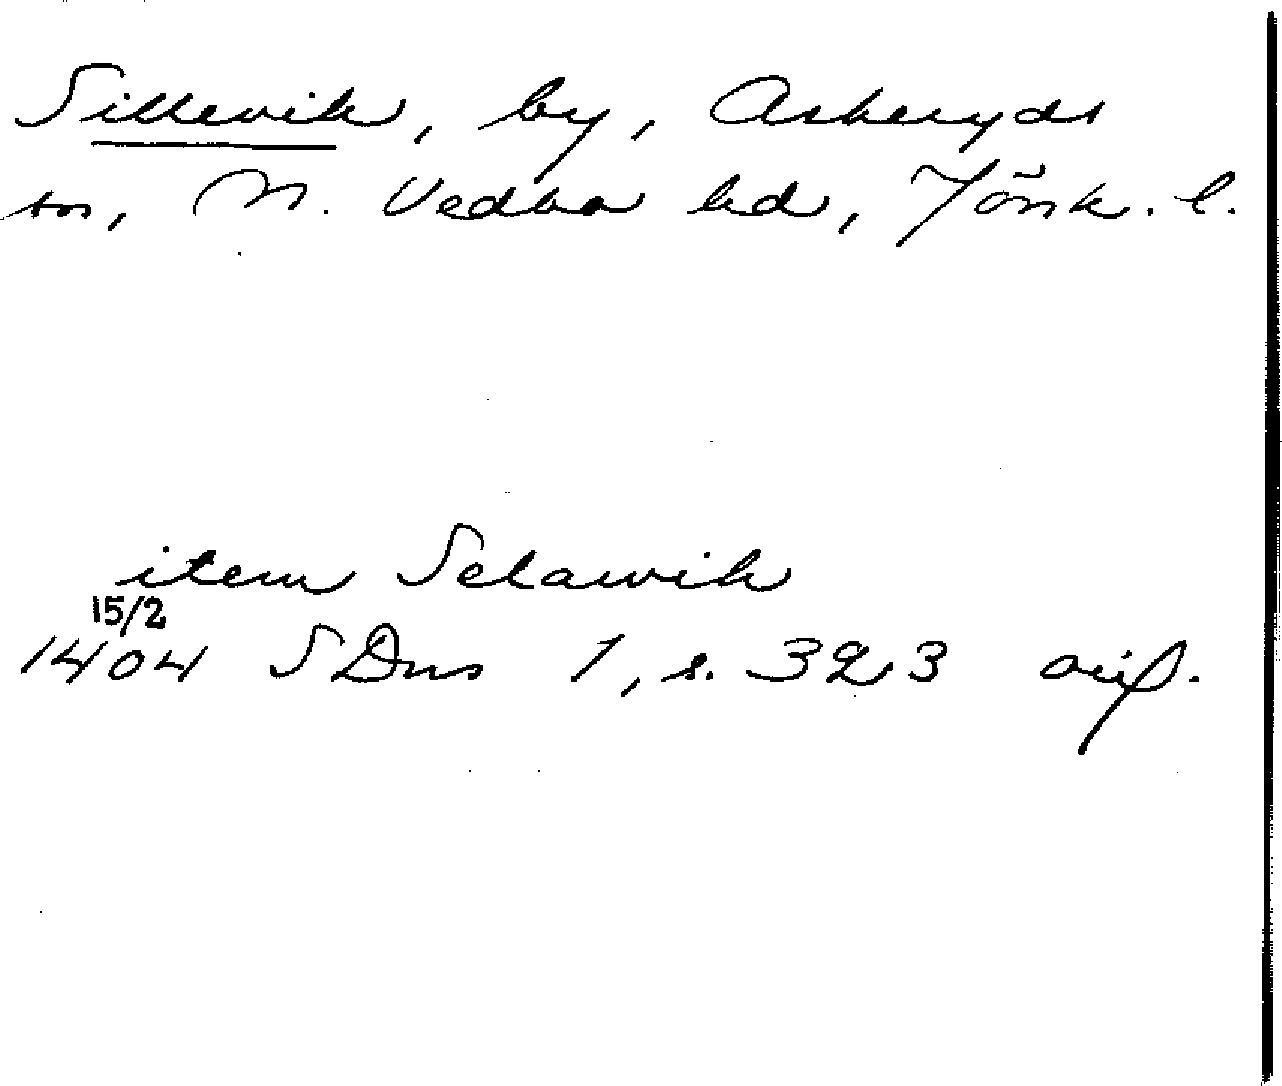 Sillevik, by, Askeryds
sn, N. Vedbo hd, Jönk. l.
item Selawik
15/2
1404 SDns 1, s. 323 avſ.